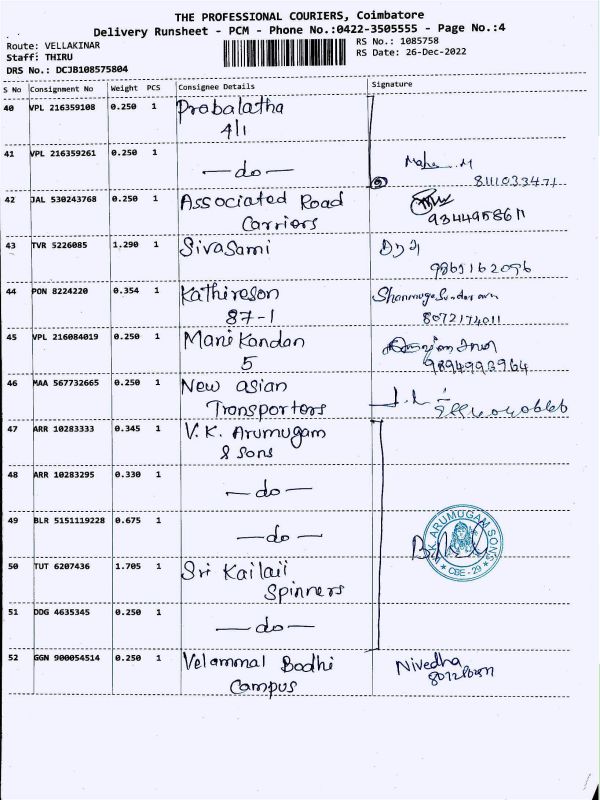 THE PROFESSIONAL COURIERS, Coimbatore
Delivery Runsheet - PCM - Phone No.:0422-3505555 - Page No.:4
Route: VELLAKINAR
RS No.: 1085758
Staff: THIRU
RS Date: 26-Dec-2022
DRS No.: DCJB108575804
S No Consignment No Weight PCS Consignee Details Signature
40 VPL 216359108 0.250 1 Probalatha
4/1
41 VPL 216359261 0.250 1 —do—
8111033471
42 JAL 530243768 0.250 1 Associated Road
Carriers
43 TVR 5226085 1.290 1 Sivasami
9865162096
44 PON 8224220 0.354 1 Kathireson
87-1
8072174011
45 VPL 216084019 0.250 1 Mani Kandan
5
9894993964
46 MAA 567732665 0.250 1 New asian
Transporters
47 ARR 10283333 0.345 1 V.K. Arumugam
& Sons
48 ARR 10283295 0.330 1 —do—
49 BLR 5151119228 0.675 1 —do—
V.K. ARUMUGAM SONS
★ CBE - 29 ★
50 TUT 6207436 1.705 1 Sri Kailaii
Spinners
51 DDG 4635345 0.250 1 —do—
52 GGN 900054514 0.250 1 Velammal Bodhi Nivedha
Campus